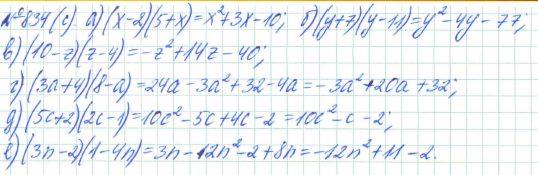 №834(с). а) (x-2)(5+x)=x²+3x-10; б) (y+7)(y-11)=y²-4y-77;
в) (10-z)(z-4)=-z²+14z-40;
г) (3a+4)(8-a)=24a-3a²+32-4a=-3a²+20a+32;
д) (5c+2)(2c-1)=10c²-5c+4c-2=10c²-c-2;
е) (3n-2)(1-4n)=3n-12n²-2+8n=-12n²+11-2.